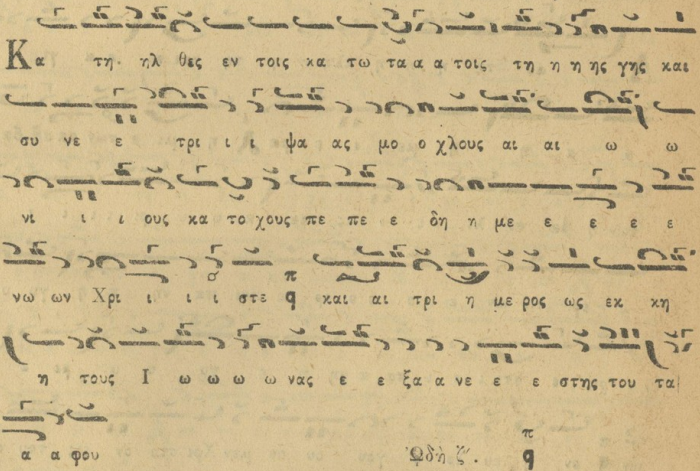 Κα τη ηλ θες εν τοις κα τω τα α α τοις τη η η ης γης και
συ νε ε τρι ι ι ψα ας μο ο χλους αι αι ω ω
νι ι ι ους κα το χους πε πε ε δη η με ε ε ε ε
νω ων Χρι ι ι ι στε π q και αι τρι η με ρος ως εκ κη
η τους Ι ω ω ω ω νας ε ε ξα α νε ε ε στης του τα
α α φου Ωδὴ ζ΄. π q